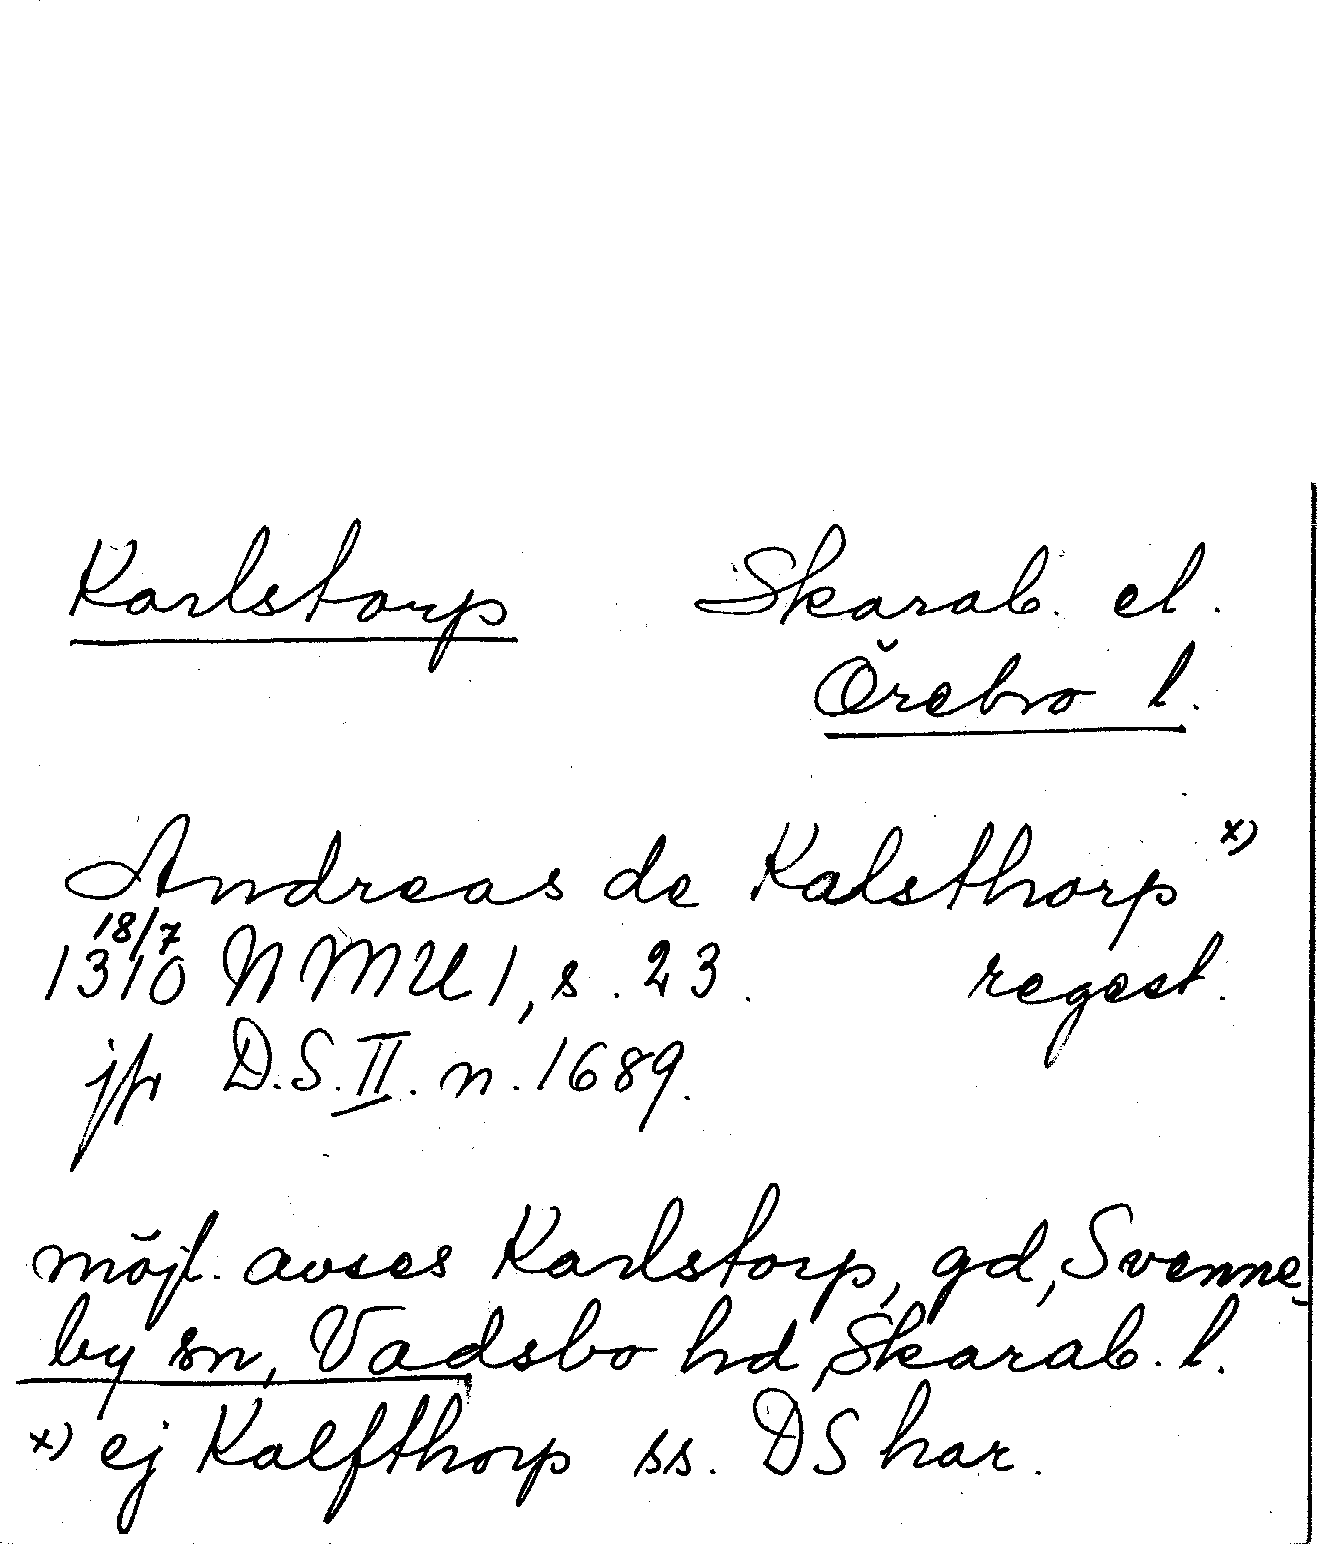 Karlstorp Skarab. el.
Örebro l.
Andreas de Kalsthorp x)
18/7
1310 NMU 1, s. 23. regest.
jfr D.S. II. n. 1689.
möjl. avses Karlstorp, gd, Svenne-
by sn, Vadsbo hd, Skarab. l.
x) ej Kalfthorp ss. DS har.